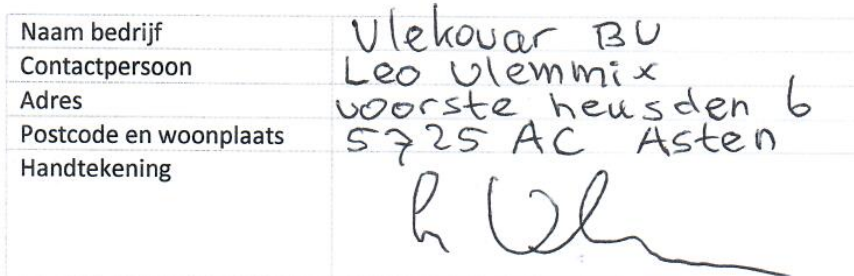 Naam bedrijf Vlekovar BV
Contactpersoon Leo Vlemmix
Adres voorste heusden 6
Postcode en woonplaats 5725 AC Asten
Handtekening